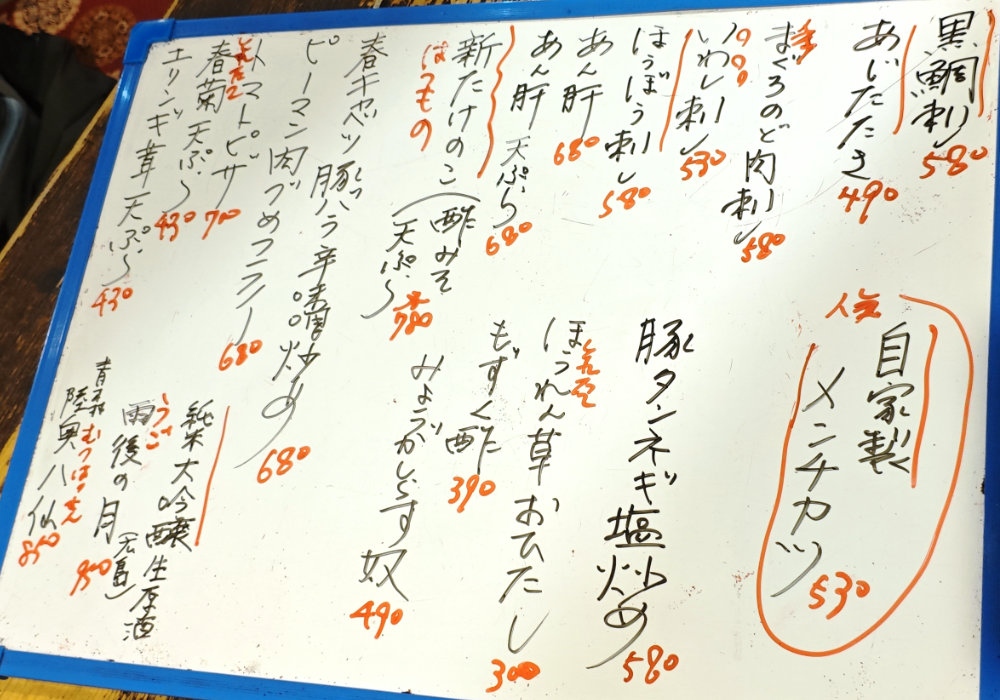 黒鯛刺し 580
あじたたき 490
まぐろのど肉刺し 580
いわし刺し 530
ほうぼう刺し 580
あん肝 680
あん肝天ぷら 680
新たけのこ(酢みそ 天ぷら 780
はつもの
春キャベツ豚バラ辛味噌炒め
ピーマン肉づめフライ 680
トマトピザ 700
春菊天ぷら 430
エリンギ茸天ぷら 430
人気
自家製
メンチカツ 530
豚タンネギ塩炒め 580
ほうれん草おひたし 300
もずく酢 390
みょうがしらす奴 490
680
純米大吟醸生原酒
うご
雨後の月(広島) 950
青森
むつはっせん
陸奥八仙 850